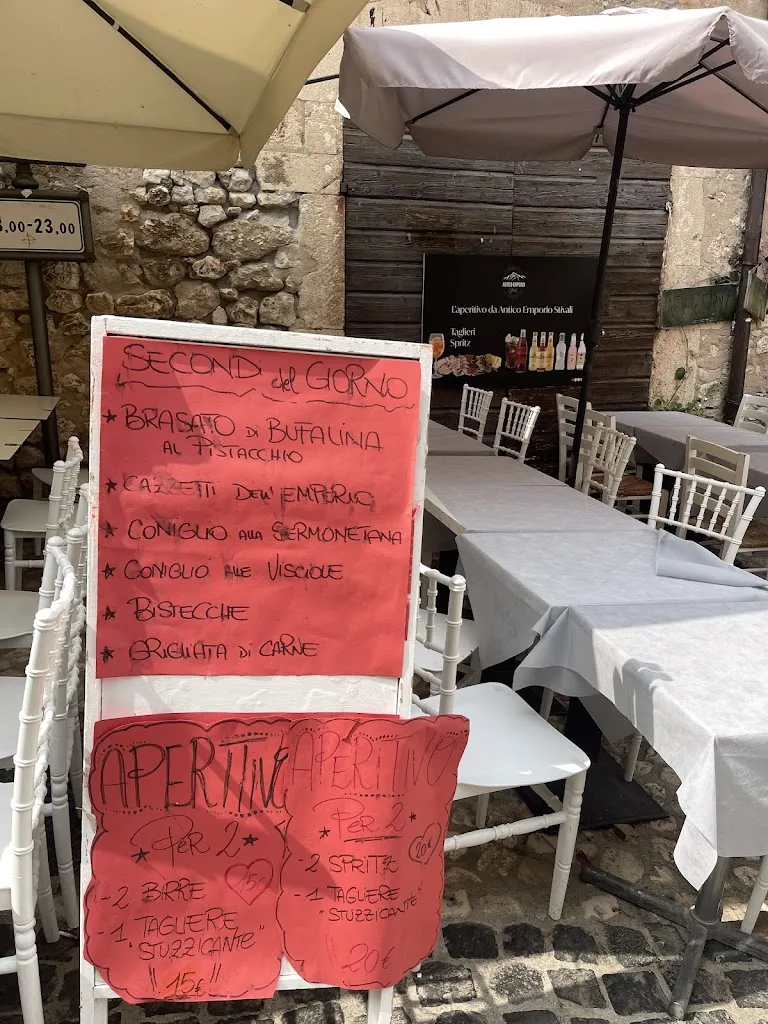 3,00-23,00
ANTICO EMPORIO
L'aperitivo da Antico Emporio Stivali
Taglieri
Spritz
SECONDI del GIORNO
* BRASATO DI BUFALINA
AL PISTACCHIO
* CAZZETTI DELL'EMPORIO
* CONIGLIO ALLA SERMONETANA
* CONIGLIO ALLE VISCIOLE
* BISTECCHE
* GRIGLIATA DI CARNE
APERITIVO
* PER 2 *
15€
- 2 BIRRE
- 1 TAGLIERE
"STUZZICANTE"
!! 15€ !!
APERITIVO
* PER 2 *
20€
- 2 SPRITZ
- 1 TAGLIERE
"STUZZICANTE"
20€